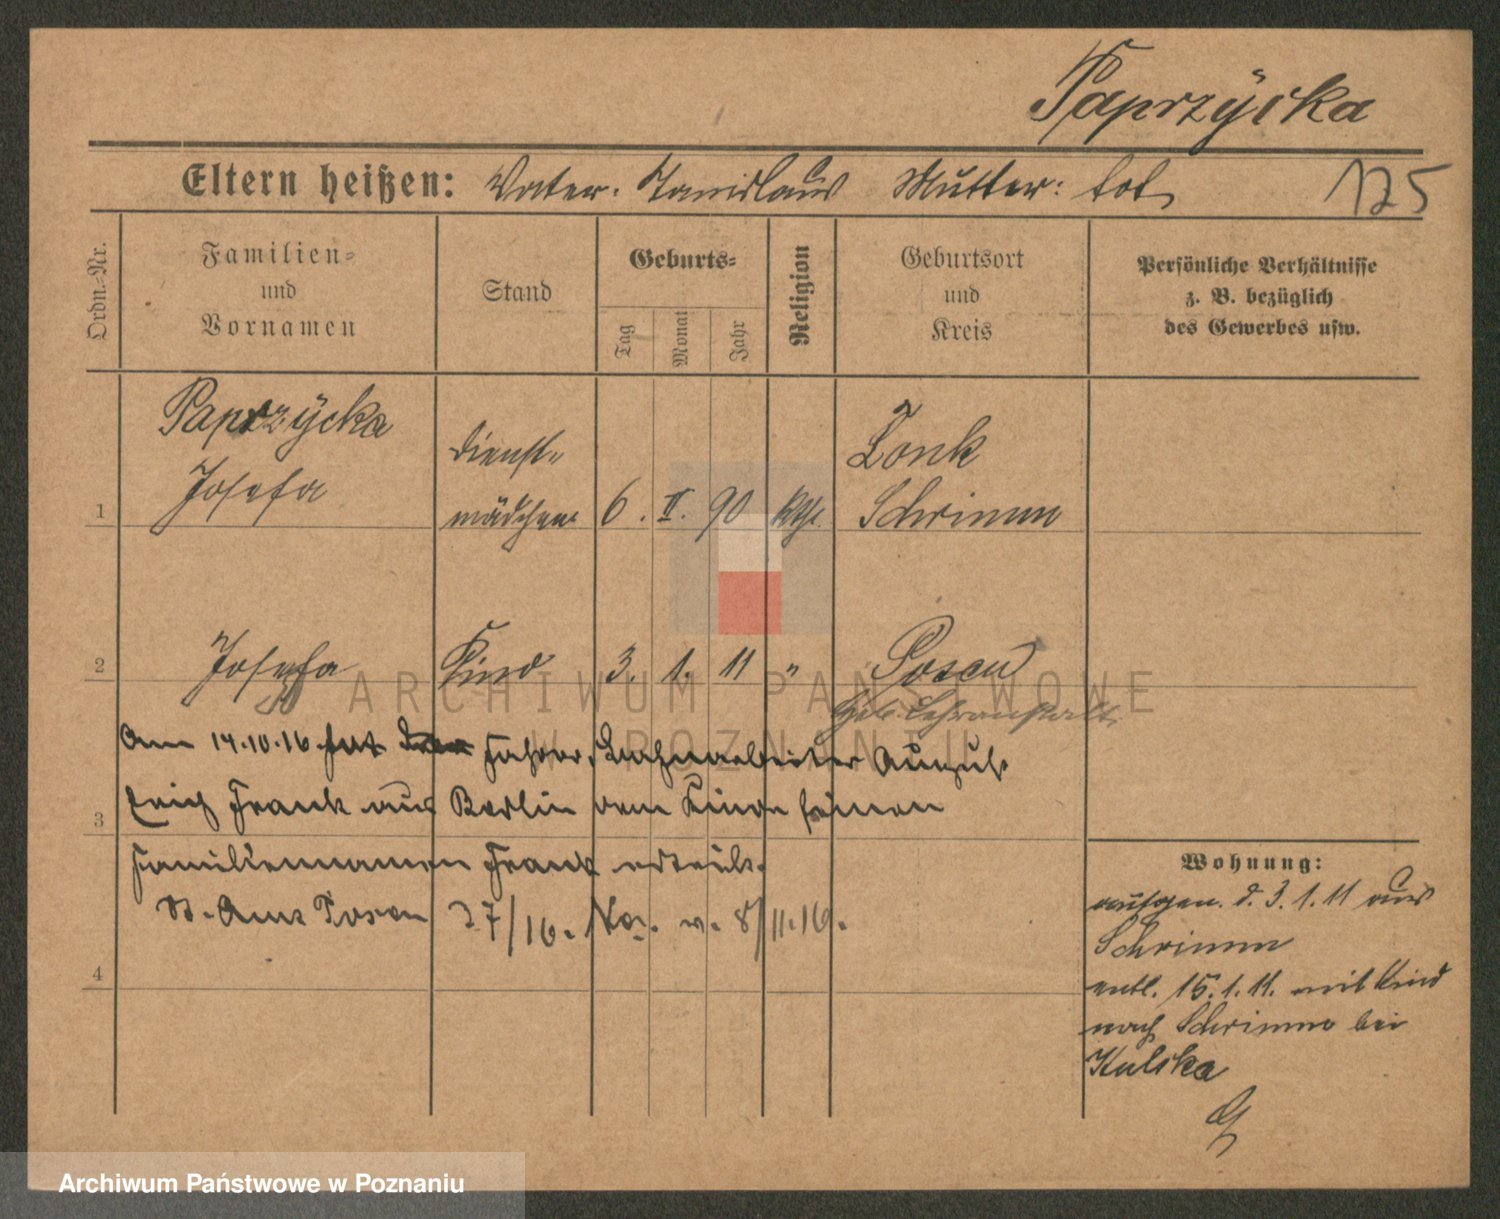 Paprzÿcka
Eltern heißen: Vater: Stanislaus Mutter: tot,
125
Ordn.-Nr.
Familien-
und
Vornamen
Stand
Geburts-
Tag
Monat
Jahr
Religion
Geburtsort
und
Kreis
Persönliche Verhältnisse
z. B. bezüglich
des Gewerbes usw.
1
Paprzÿcka
Josefa
Dienst-
mädchen
6. II. 90
kth.
Lonk
Schrimm
2
Josefa
Kind
3. 1. 11
"
Posen
Heb. Lehranstalt
Am 14.10.16 hat
August
3
Erich Frank aus Berlin dem Kinde seinen
Familiennamen Frank erteilt.
St. Amt Posen 37/16. v. 8/11.16.
4
Wohnung:
aufgen. d. 3.1.11 aus
Schrimm
entl. 15.1.11. mit Kind
nach Schrimm bei
Kulska
ARCHIWUM PAŃSTWOWE
W POZNANIU
Archiwum Państwowe w Poznaniu